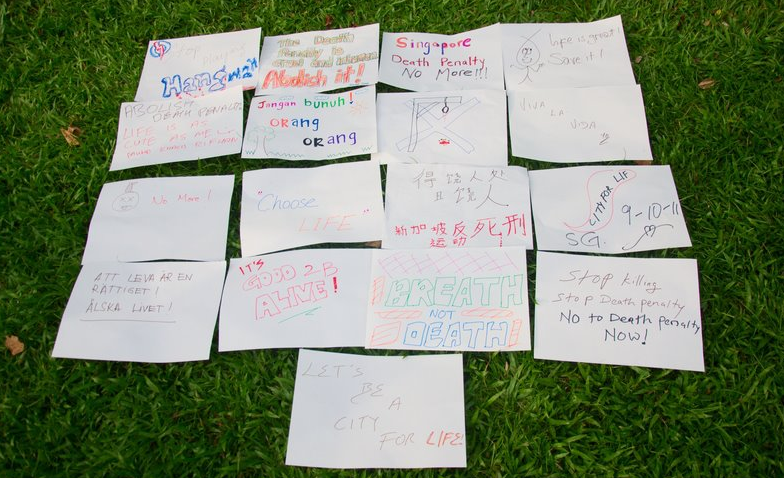 Stop
Hanging
Hangman
The Death
Penalty is
Cruel And Inhumane
Abolish it!
Singapore
Death Penalty
No More!!!
Life is great!
Save it!
ABOLISH
DEATH PENALTY
LIFE IS AS
CUTE AS ME
Jangan bunuh!
orang
orang
VIVA
LA
VIDA
No More!
"Choose
LIFE"
得饶人处
且饶人
新加坡反死刑
运动!
CITY FOR LIF
9-10-11
SG.
ATT LEVA ÄR EN
RÄTTIGET!
ÄLSKA LIVET!
IT'S
GOOD 2 B
ALIVE!
BREATH
NOT
DEATH!
Stop killing
Stop Death penalty
No to Death penalty
Now!
LET'S
BE
A
CITY
FOR LIFE!